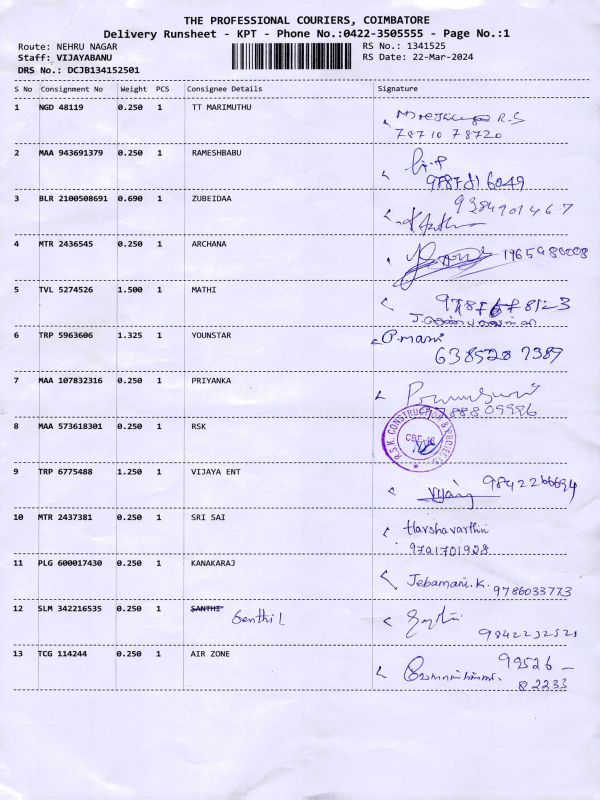 THE PROFESSIONAL COURIERS, COIMBATORE
Delivery Runsheet - KPT - Phone No.:0422-3505555 - Page No.:1
Route: NEHRU NAGAR RS No.: 1341525
Staff: VIJAYABANU RS Date: 22-Mar-2024
DRS No.: DCJB134152501
S No Consignment No Weight PCS Consignee Details Signature
1 NGD 48119 0.250 1 TT MARIMUTHU R.S
78710 78720
2 MAA 943691379 0.250 1 RAMESHBABU
978781 6049
3 BLR 2100508691 0.690 1 ZUBEIDAA
4 MTR 2436545 0.250 1 ARCHANA
5 TVL 5274526 1.500 1 MATHI
6 TRP 5963606 1.325 1 YOUNSTAR P.mani
638528 7389
7 MAA 107832316 0.250 1 PRIYANKA
8 MAA 573618301 0.250 1 RSK R.S.K. CONSTRUCTION & PROJECTS
CBE-18
9 TRP 6775488 1.250 1 VIJAYA ENT
10 MTR 2437381 0.250 1 SRI SAI Harshavarthini
9791701928
11 PLG 600017430 0.250 1 KANAKARAJ Jebamani.K. 9786033773
12 SLM 342216535 0.250 1 SANTHI Senthil
9842232521
13 TCG 114244 0.250 1 AIR ZONE 99526 -
82233